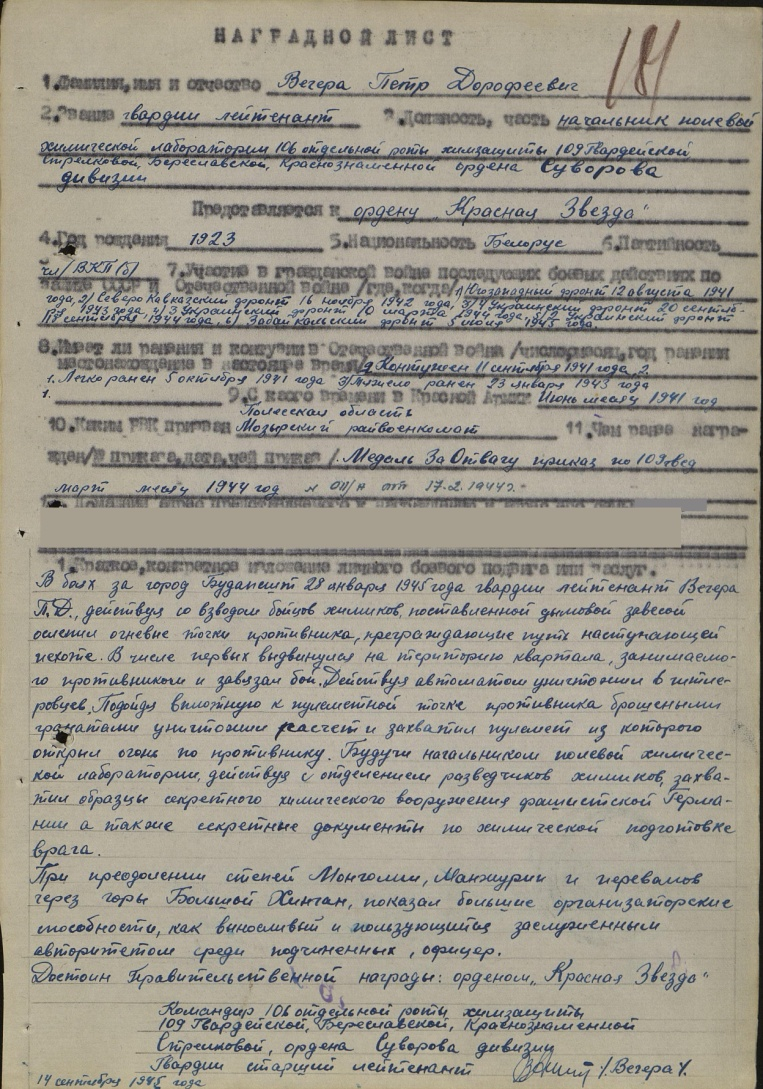 НАГРАДНОЙ ЛИСТ
181
1.Фамилия,имя и отчество Вечера Петр Дорофеевич
2.Звание гвардии лейтенант 3.Должность, часть начальник полевой
химической лаборатории 106 отдельной роты химзащиты 109 Гвардейской
Стрелковой, Бериславской, Краснознаменной ордена Суворова
дивизии
Представляется к ордену „Красная Звезда"
4.Год рождения 1923 5.Национальность Белорус 6.Партийность
чл/ВКП(б) 7.Участие в гражданской войне последующих боевых действиях по
защите СССР и Отечественной войне /где,когда/ 1) Югозападный фронт 12 августа 1941
года, 2) Северо Кавказский фронт 16 ноября 1942 года, 3) 4 Украинский фронт 20 сентяб-
ря 1943 года, 4) 3 Украинский фронт 10 марта 1944 года, 5) 2 Украинский фронт
сентября 1944 года, 6) Забайкальский фронт 5 июля 1945 года.
8.Имеет ли ранения и контузии в Отечественной войне /число,месяц,год ранения
местонахождение в настоящее время/ Контужен 11 сентября 1941 года, 2.
1. Легко ранен 5 октября 1941 года 3) Тяжело ранен 23 января 1943 года
1. 9.С какого времени в Красной Армии Июнь месяц 1941 год
Полесская область
10.Каким РВК призван Мозырский райвоенкомат 11.Чем ранее награ-
жден/№ приказа,дата,чей приказ/. Медаль За Отвагу приказ по 109 гвсд
март месяц 1944 год № 011/н от 17.2.1944г.
1.Краткое,конкретное изложение личного боевого подвига или заслуг.
В боях за город Будапешт 28 января 1945 года гвардии лейтенант Вечера
П.Д., действуя со взводом бойцов химиков, поставленной дымовой завесой
ослепил огневые точки противника, преграждающие путь наступающей
пехоте. В числе первых выдвинулся на територию квартала, занимаемо-
го противником и завязал бой. Действуя автоматом уничтожил 8 гитле-
ровцев. Подойдя вплотную к пулеметной точке противника брошеными
гранатами уничтожил расчет и захватил пулемет из которого
открыл огонь по противнику. Будучи начальником полевой химичес-
кой лаборатории, действуя с отделением разведчиков химиков, захва-
тил образцы секретного химического вооружения фашистской Герма-
нии а также секретные документы по химической подготовке
врага.
При преодолении степей Монголии, Манжурии и перевалов
через горы Большой Хинган, показал большие организаторские
способности, как выносливый и пользующийся заслуженным
авторитетом среди подчиненных, офицер.
Достоин Правительственной награды: орденом „Красная Звезда"
Командир 106 отдельной роты химзащиты
109 Гвардейской, Бериславской, Краснознаменной
Стрелковой, ордена Суворова дивизии
Гвардии старший лейтенант /Вечера/.
14 сентября 1945 года